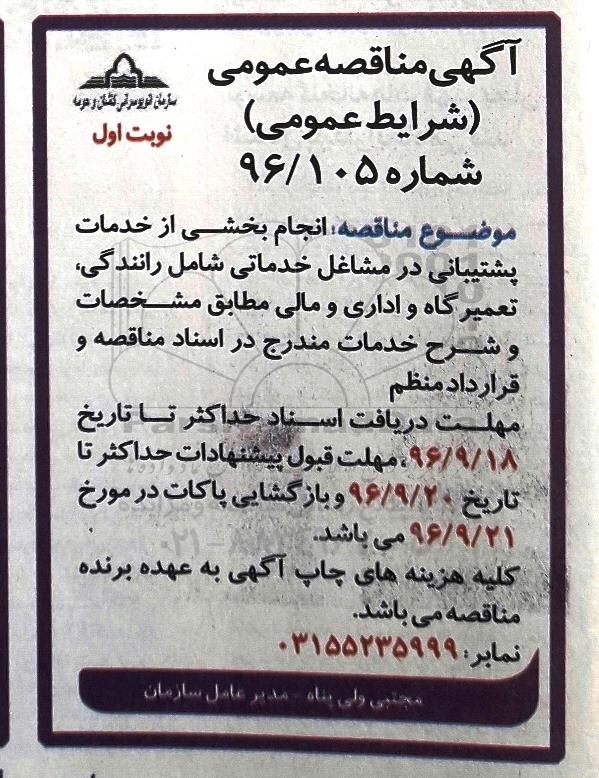 آگهی مناقصه عمومی
(شرایط عمومی)
شماره ۹۶/۱۰۵
سازمان اتوبوسرانی کاشان و حومه
نوبت اول
موضوع مناقصه: انجام بخشی از خدمات
پشتیبانی در مشاغل خدماتی شامل رانندگی،
تعمیرگاه و اداری و مالی مطابق مشخصات
و شرح خدمات مندرج در اسناد مناقصه و
قرارداد منظم
مهلت دریافت اسناد حداکثر تا تاریخ
۹۶/۹/۱۸، مهلت قبول پیشنهادات حداکثر تا
تاریخ ۹۶/۹/۲۰ و بازگشایی پاکات در مورخ
۹۶/۹/۲۱ می باشد.
کلیه هزینه های چاپ آگهی به عهده برنده
مناقصه می باشد.
نمابر: ۰۳۱۵۵۲۳۵۹۹۹
مجتبی ولی پناه - مدیر عامل سازمان